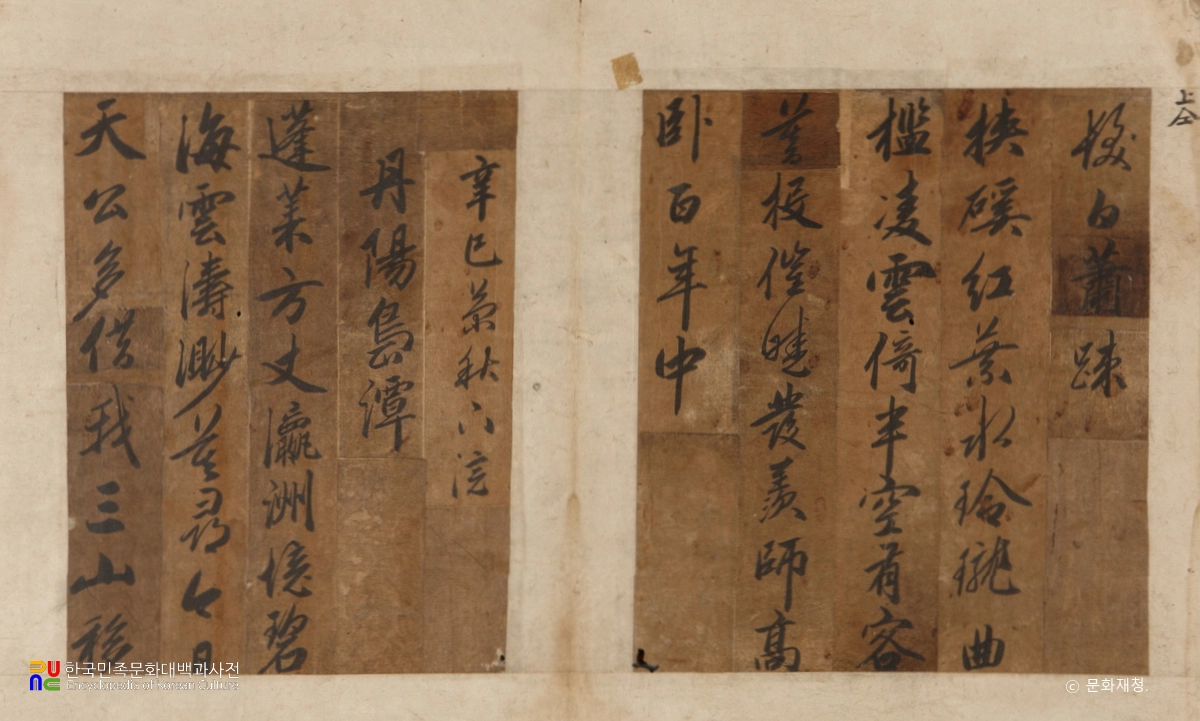 上仝
白蕭疎
挾磎紅葉水玲瓏曲
檻凌雲倚半空有客
暮投曉發羨師高
臥百年中
辛巳菊秋下浣
丹陽島潭
蓬萊方丈瀛洲憶碧
海雲濤渺茫尋今日
天公多借我三山移
한국민족문화대백과사전
Encyclopedia of Korean Culture
ⓒ 문화재청.